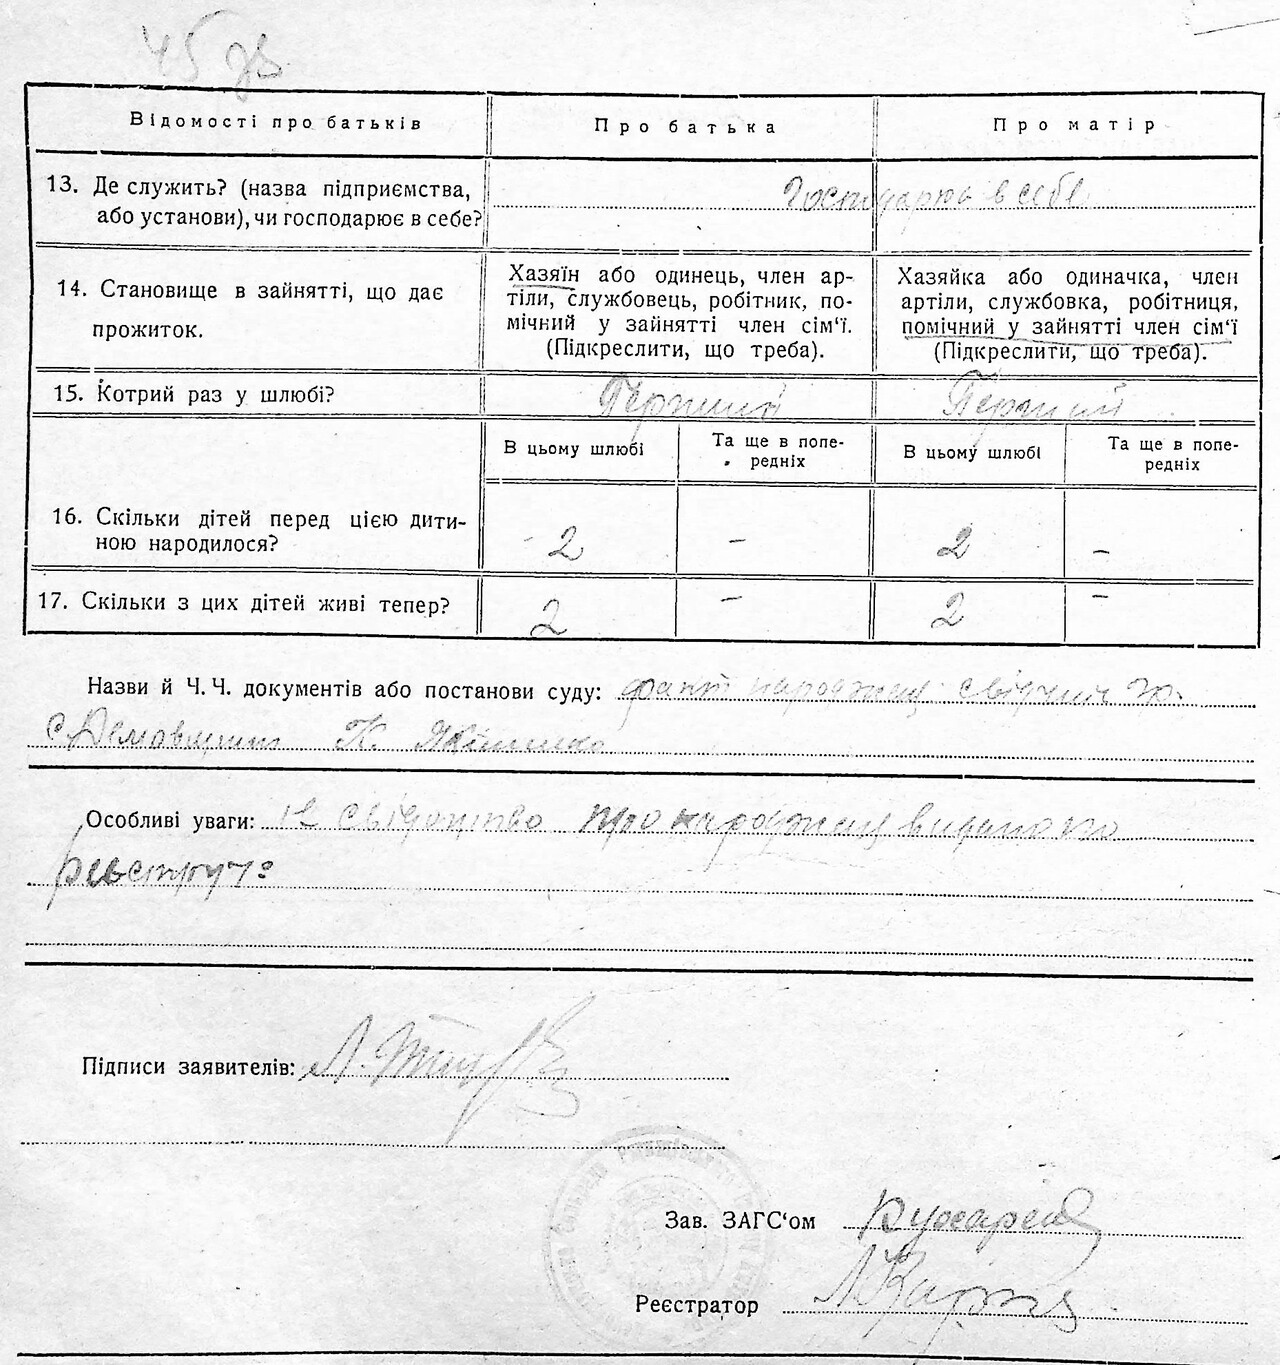 45 зв
Відомості про батьків
Про батька
Про матір
13. Де служить? (назва підприємства,
або установи), чи господарює в себе?
Господарює в себе
14. Становище в зайнятті, що дає
прожиток.
Хазяїн або одинець, член ар-
тіли, службовець, робітник, по-
мічний у зайнятті член сім‘ї.
(Підкреслити, що треба).
Хазяйка або одиначка, член
артіли, службовка, робітниця,
помічний у зайнятті член сім‘ї
(Підкреслити, що треба).
15. Котрий раз у шлюбі?
Перший
Перший
В цьому шлюбі
Та ще в попе-
редніх
В цьому шлюбі
Та ще в попе-
редніх
16. Скільки дітей перед цією дити-
ною народилося?
2
–
2
–
17. Скільки з цих дітей живі тепер?
2
–
2
–
Назви й Ч. Ч. документів або постанови суду: факт
с.
К.
Особливі уваги: свідоцтво про
Підписи заявителів:
Зав. ЗАГС‘ом
Реєстратор